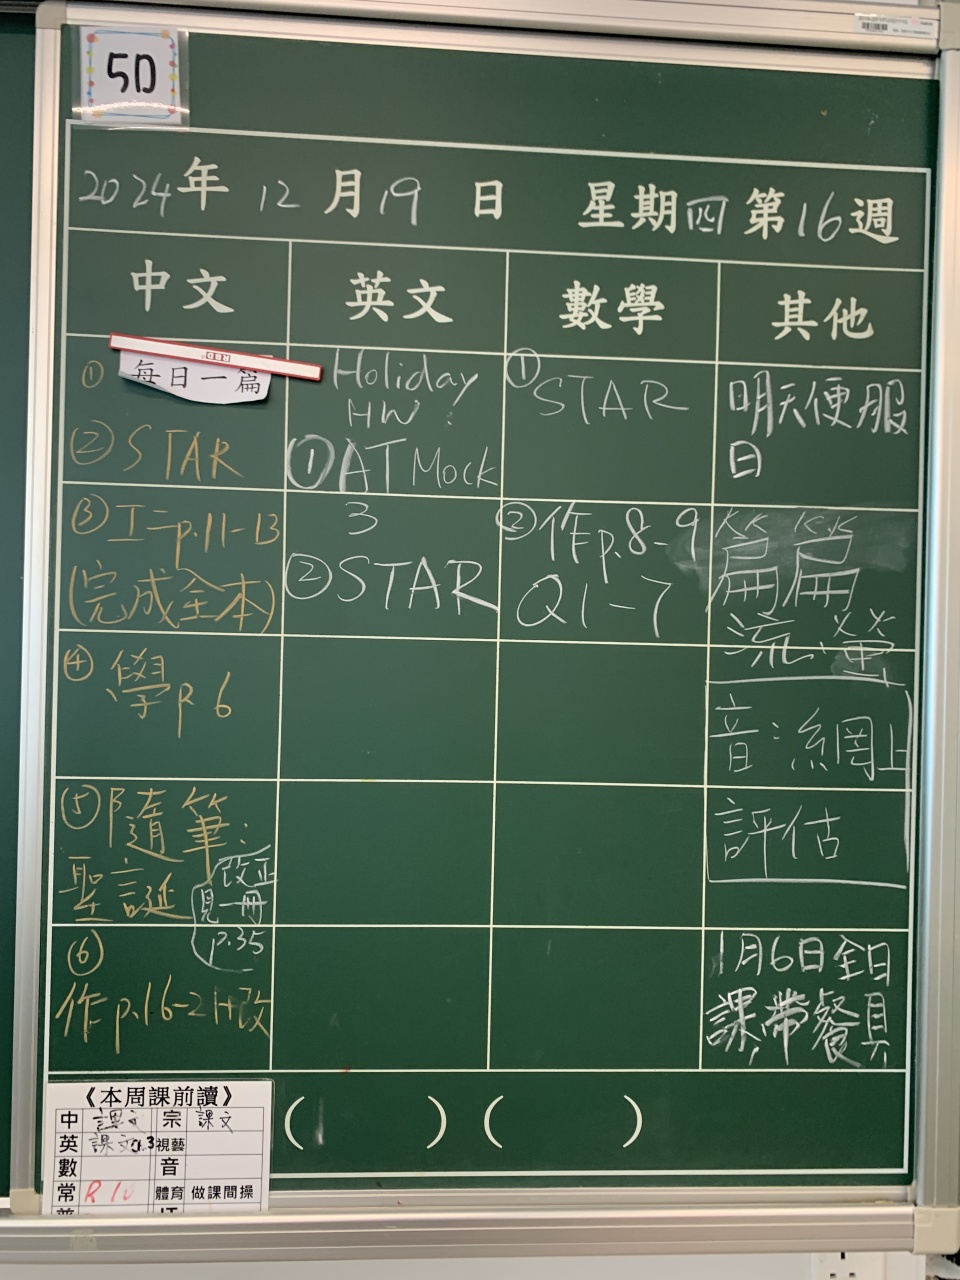 5D
2024年 12月19日 星期四 第16週
中文
① 每日一篇
② STAR
③ 工二p.11-13
(完成全本)
④ 學p.6
⑤ 隨筆:
聖誕
改正
見一冊
p.35
⑥
作p.16-21+改
英文
Holiday
HW:
① AT Mock
3
② STAR
數學
① STAR
② 作p.8-9
Q1-7
其他
明天便服
日
篇篇
流螢
音:網上
評估
1月6日全日
課,帶餐具
《本周課前讀》
中 課文 宗 課文
英 課文 視藝
數 音
常 體育 做課間操
( ) ( )